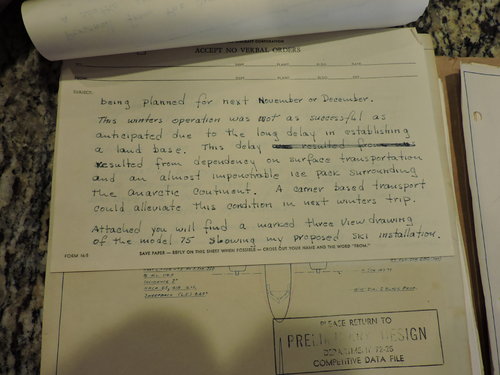 AIRCRAFT CORPORATION
ACCEPT NO VERBAL ORDERS
DEPT. PLANT BLDG. DATE
FROM DEPT. PLANT BLDG. EXT.
SUBJECT:
being planned for next November or December.
This winters operation was not as successful as
anticipated due to the long delay in establishing
a land base. This delay was resulted from
resulted from dependency on surface transportation
and an almost impenetrable ice pack surrounding
the Anarctic Coutinent. A carrier based transport
could alleviate this condition in next winters trip.
Attached you will find a marked three view drawing
of the model 75 showing my proposed ski installation.
FORM 16-S SAVE PAPER — REPLY ON THIS SHEET WHEN POSSIBLE — CROSS OUT YOUR NAME AND THE WORD "FROM."
PLEASE RETURN TO
PRELIMINARY DESIGN
DEPARTMENT 72-25
COMPETITIVE DATA FILE